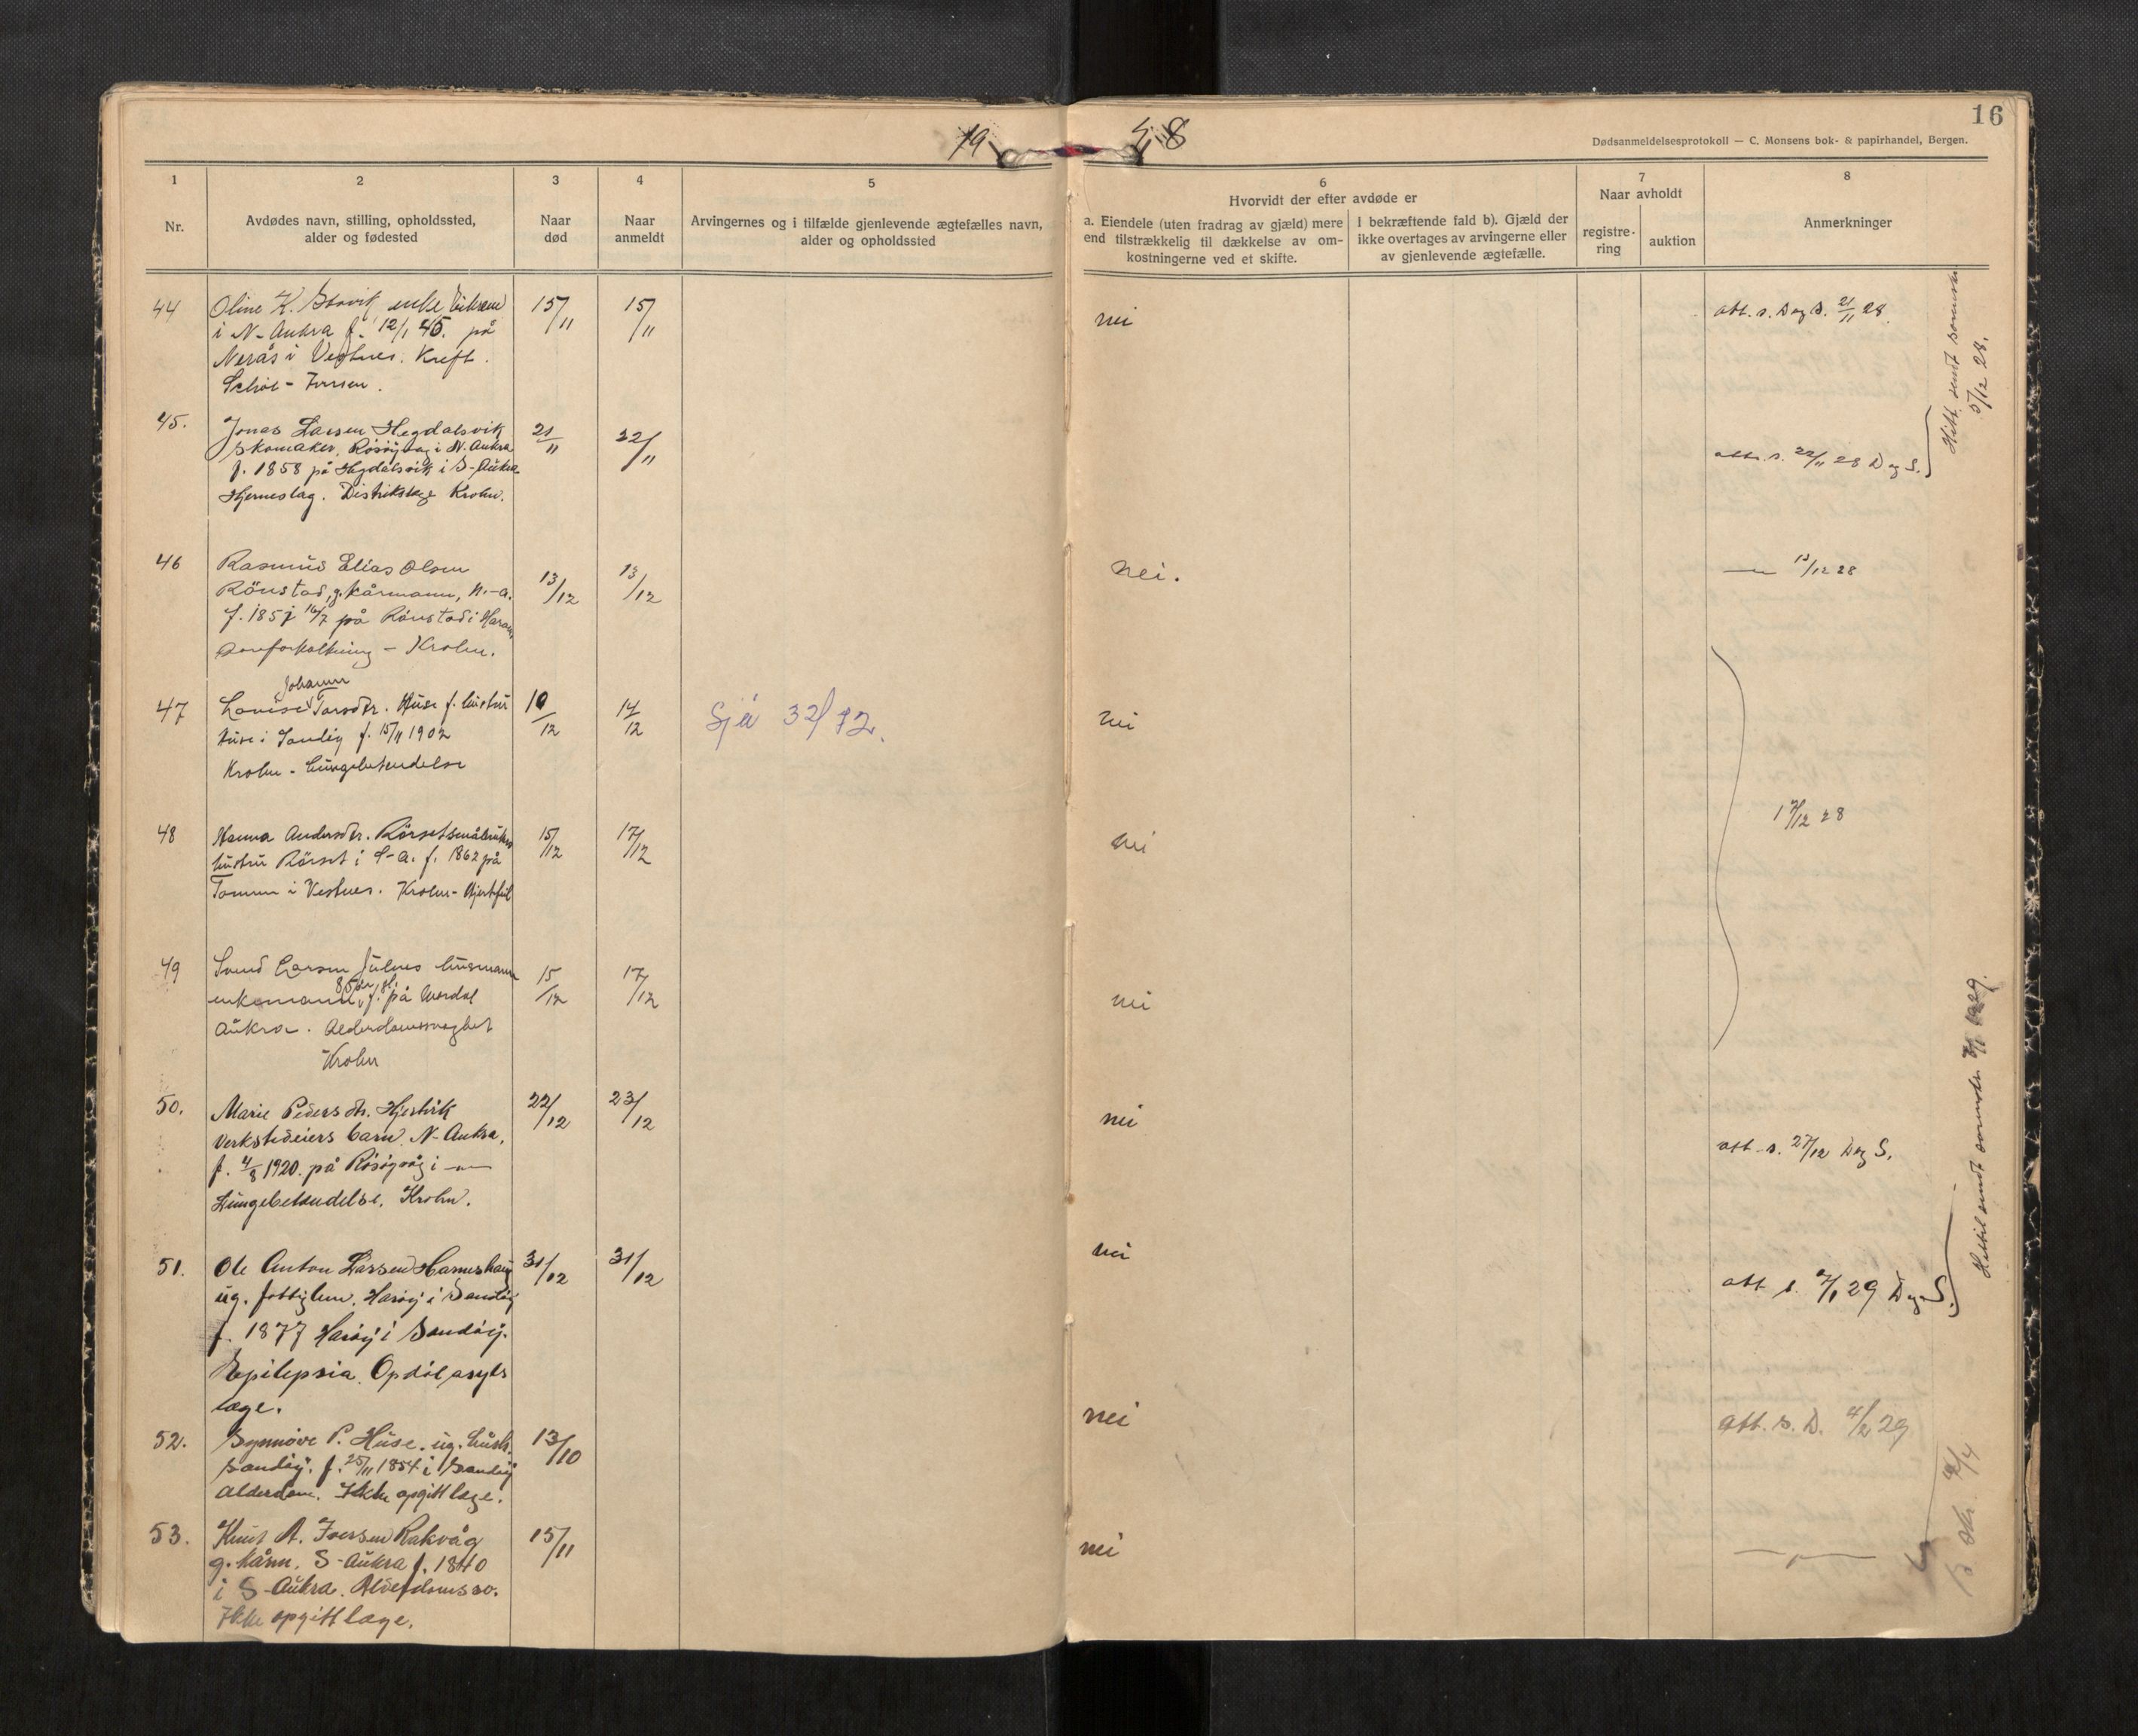 16
19 28
Dødsanmeldelsesprotokoll — C. Monsens bok- & papirhandel, Bergen.
1
Nr.
2
Avdødes navn, stilling, opholdssted,
alder og fødested
3
Naar
død
4
Naar
anmeldt
5
Arvingernes og i tilfælde gjenlevende ægtefælles navn,
alder og opholdssted
6
Hvorvidt der efter avdøde er
a. Eiendele (uten fradrag av gjæld) mere
end tilstrækkelig til dækkelse av om-
kostningerne ved et skifte.
I bekræftende fald b). Gjæld der
ikke overtages av arvingerne eller
av gjenlevende ægtefælle.
7
Naar avholdt
registre-
ring
auktion
8
Anmerkninger
44 Oline K. enke
i N-Aukra f. 12/1 45. på
Nerås i Vestnes. Kreft.
15/11 15/11 nei att. s. D og S. 21/11 28
45. Jonas Larsen Hegdalsvik
skomaker, Røsøyvåg i N. Aukra
f. 1858 på Hegdalsvik i S-Aukra
Hjerneslag. Distriktslege Krohn.
21/11 22/11 att. s. 22/11 28 D og S.
sendt 5/12 28.
46 Rasmus Elias Olsen
Rönstad, g. kårmann, N.-A.
f. 1851 16/7 på Rönstad i Haram
Krohn.
13/12 13/12 nei. 13/12 28
47 Johanna
Lovise Tarsdtr. Huse f. hustru
Huse i Sandöy f. 15/11 1902
Krohn - lungebetendelse
10/12 14/12 Sjå 32/72. nei
48 Hanna Andersdtr. Rörset småbrukers
hustru Rörset i S-A. f. 1862 på
i Vestnes. Krohn - Hjertefeil
15/12 17/12 nei 17/12 28
49 Larsen Julnes husmann
enkemann, 85 år gl. f. på
Aukra. Alderdomssvaghet
Krohn
15/12 17/12 nei
50. Marie Pedersdtr. Hjertvik
Verkstedeiers barn. N-Aukra,
f. 4/8 1920. på Røsøyvåg i
Lungebetendelse. Krohn.
22/12 23/12 nei att. s. 27/12 D og S.
51. Ole Anton Larsen Harnshaug
ug. fattiglem. Harøy i Sandøy
f. 1877 Harøy i Sandøy.
Epilepsia. Opdøl asyls
læge.
31/12 31/12 nei att. s. 29 D og S.
sendt 1929.
52. Synnøve P. Huse. ug. hush.
Sandøy. f. 25/11 1854 i Sandøy
Alderdom. Ikke opgitt læge.
13/10 nei att. s. D. 4/2 29
53. Knut A. Iversen Rakvåg
g. kårm. S-Aukra f. 1840
i S-Aukra. Alderdomssv.
Ikke opgitt læge.
15/11 nei